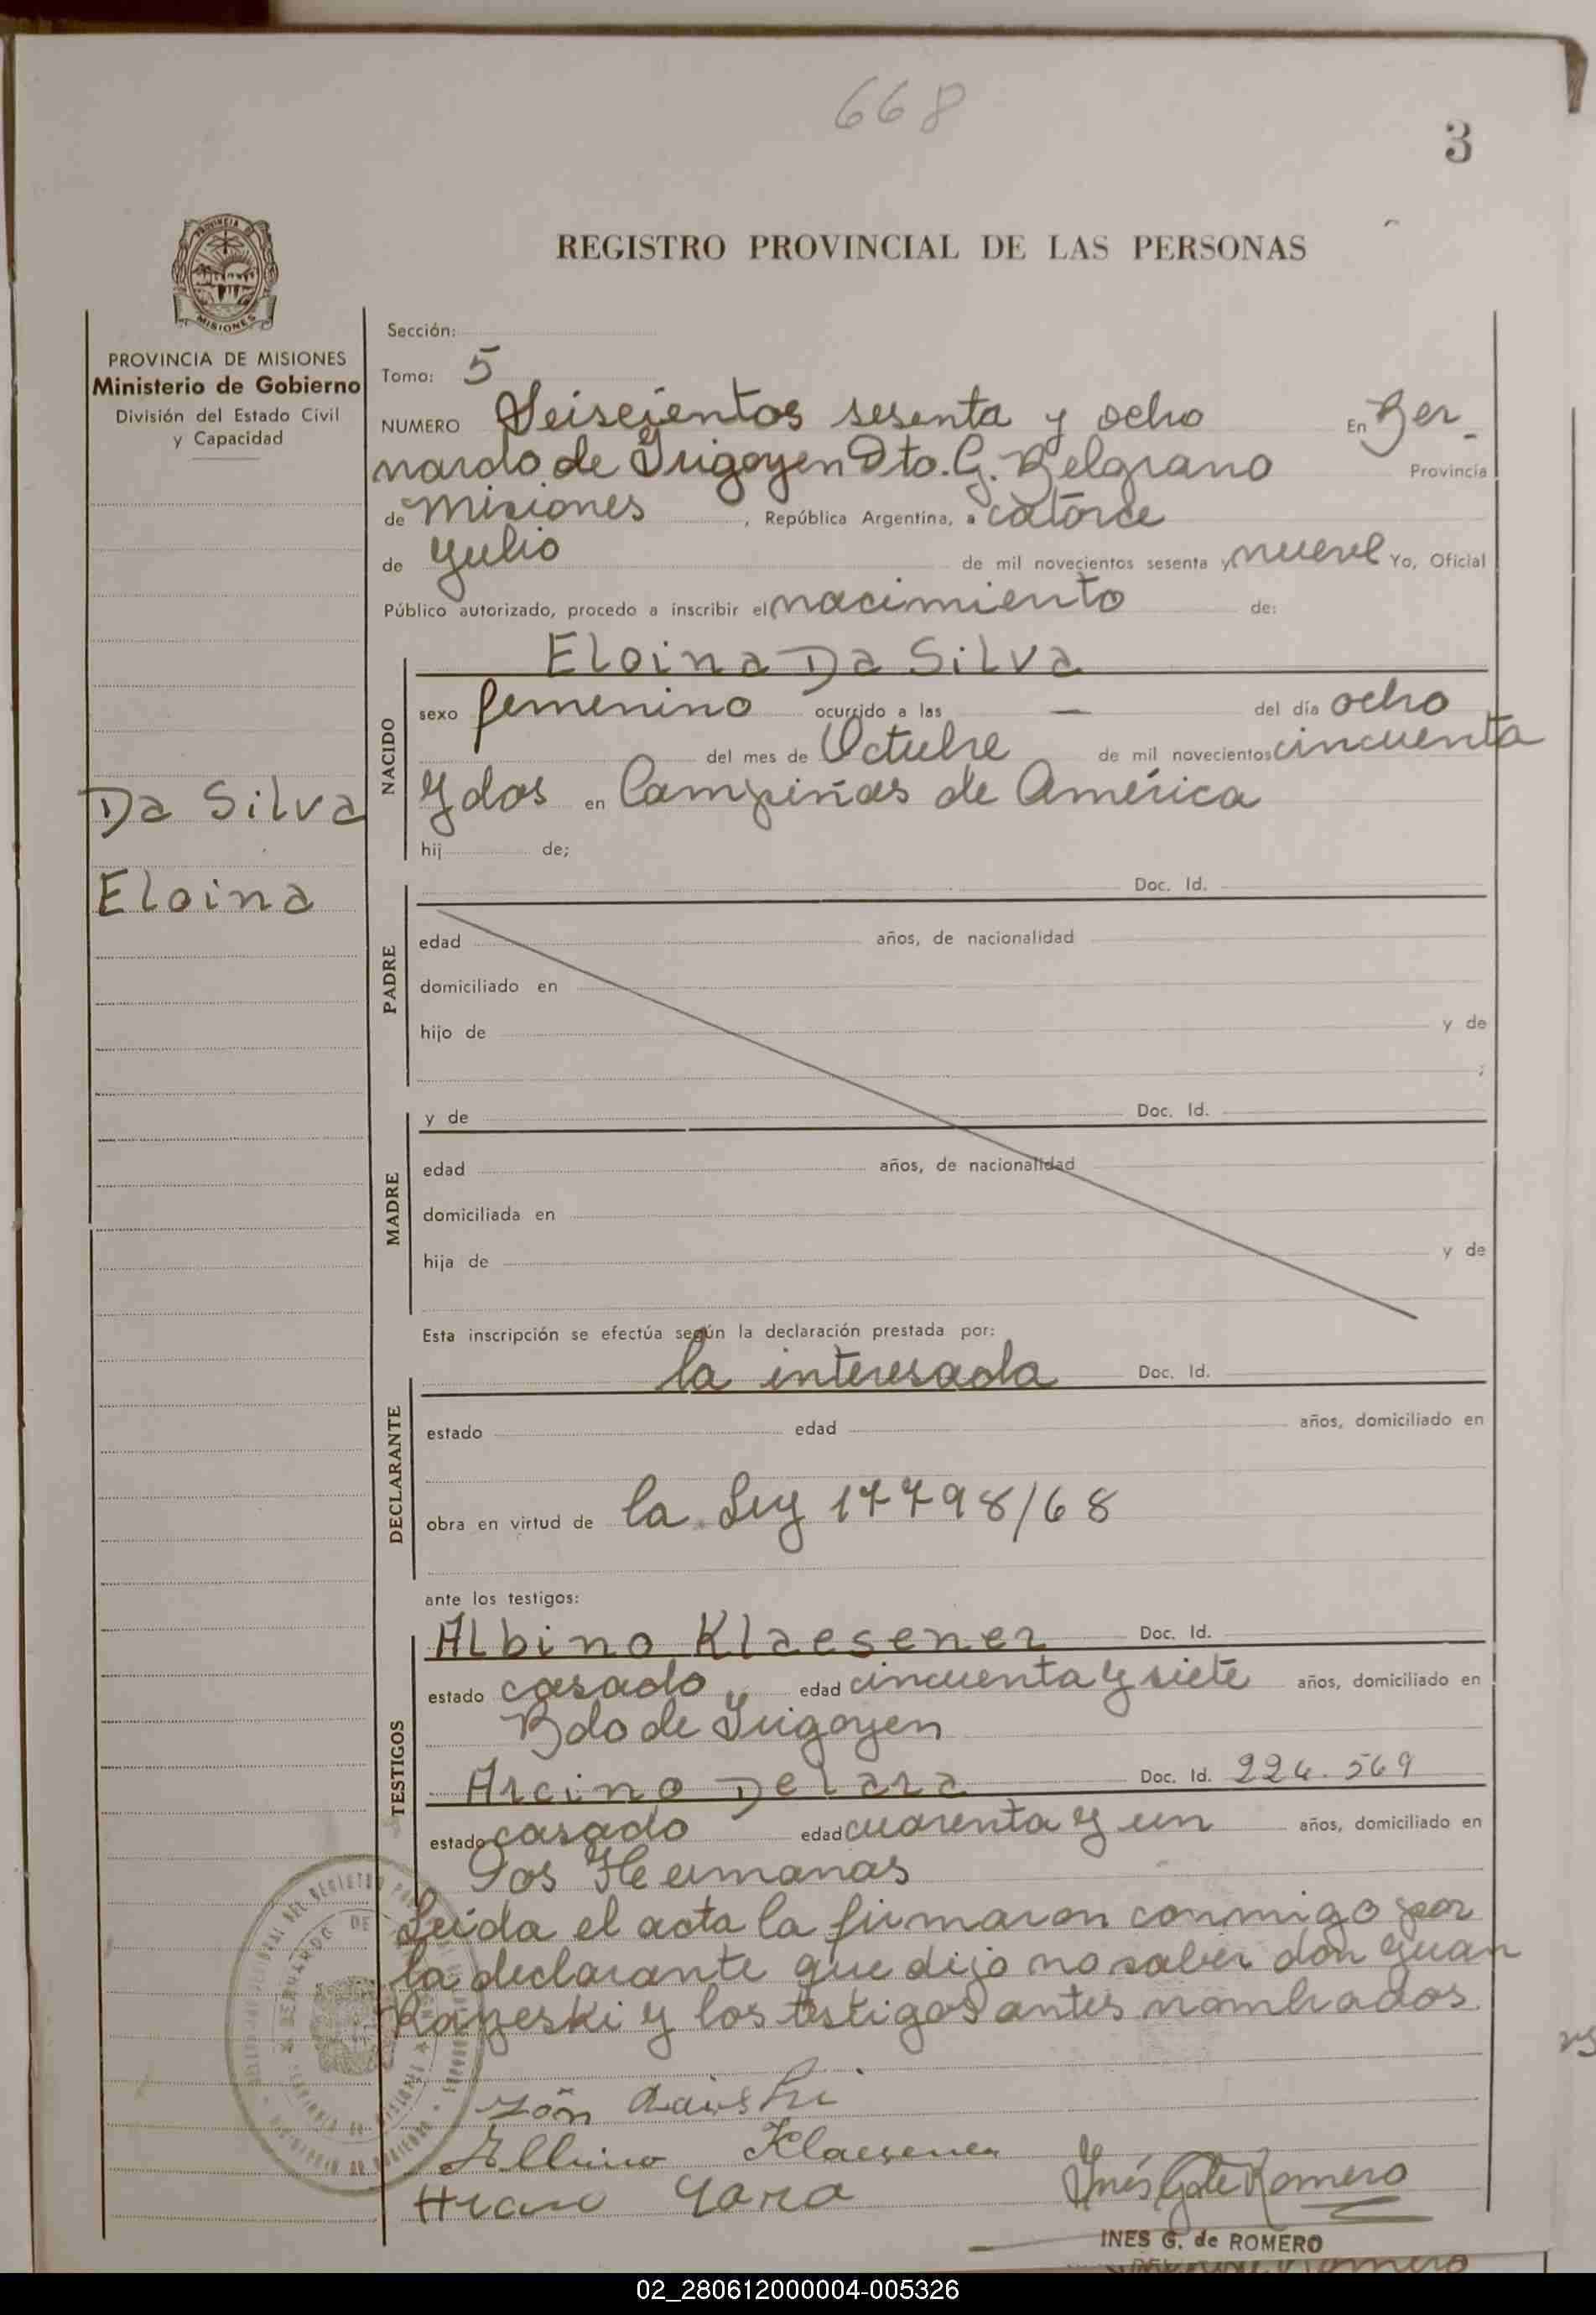 668
3
REGISTRO PROVINCIAL DE LAS PERSONAS
MISIONES
PROVINCIA DE MISIONES
Ministerio de Gobierno
División del Estado Civil
y Capacidad
Da Silva
Eloina
Sección:
Tomo: 5
NUMERO Seiscientos sesenta y ocho En Ber-
nardo de Irigoyen Dto. G. Belgrano Provincia
de Misiones, República Argentina, a catorce
de Julio de mil novecientos sesenta y nueve Yo, Oficial
Público autorizado, procedo a inscribir el nacimiento de:
NACIDO
Eloina Da Silva
sexo femenino ocurrido a las — del día ocho
del mes de Octubre de mil novecientos cincuenta
y dos en Campiñas de América
hij de;
PADRE
Doc. Id.
edad años, de nacionalidad
domiciliado en
hijo de y de
;
MADRE
y de Doc. Id.
edad años, de nacionalidad
domiciliada en
hija de y de
Esta inscripción se efectúa según la declaración prestada por:
DECLARANTE
la interesada Doc. Id.
estado edad años, domiciliado en
obra en virtud de la Ley 17798/68
ante los testigos:
TESTIGOS
Albino Klaesener Doc. Id.
estado casado edad cincuenta y siete años, domiciliado en
Bdo de Irigoyen
Arcino De Lara Doc. Id. 224.569
estado casado edad cuarenta y un años, domiciliado en
Dos Hermanas
Leída el acta la firmaron conmigo por
la declarante que dijo no saber don Juan
y los testigos antes nombrados.
Albino Klaesener
Lara
Inés G. de Romero
INES G. de ROMERO
02_280612000004-005326